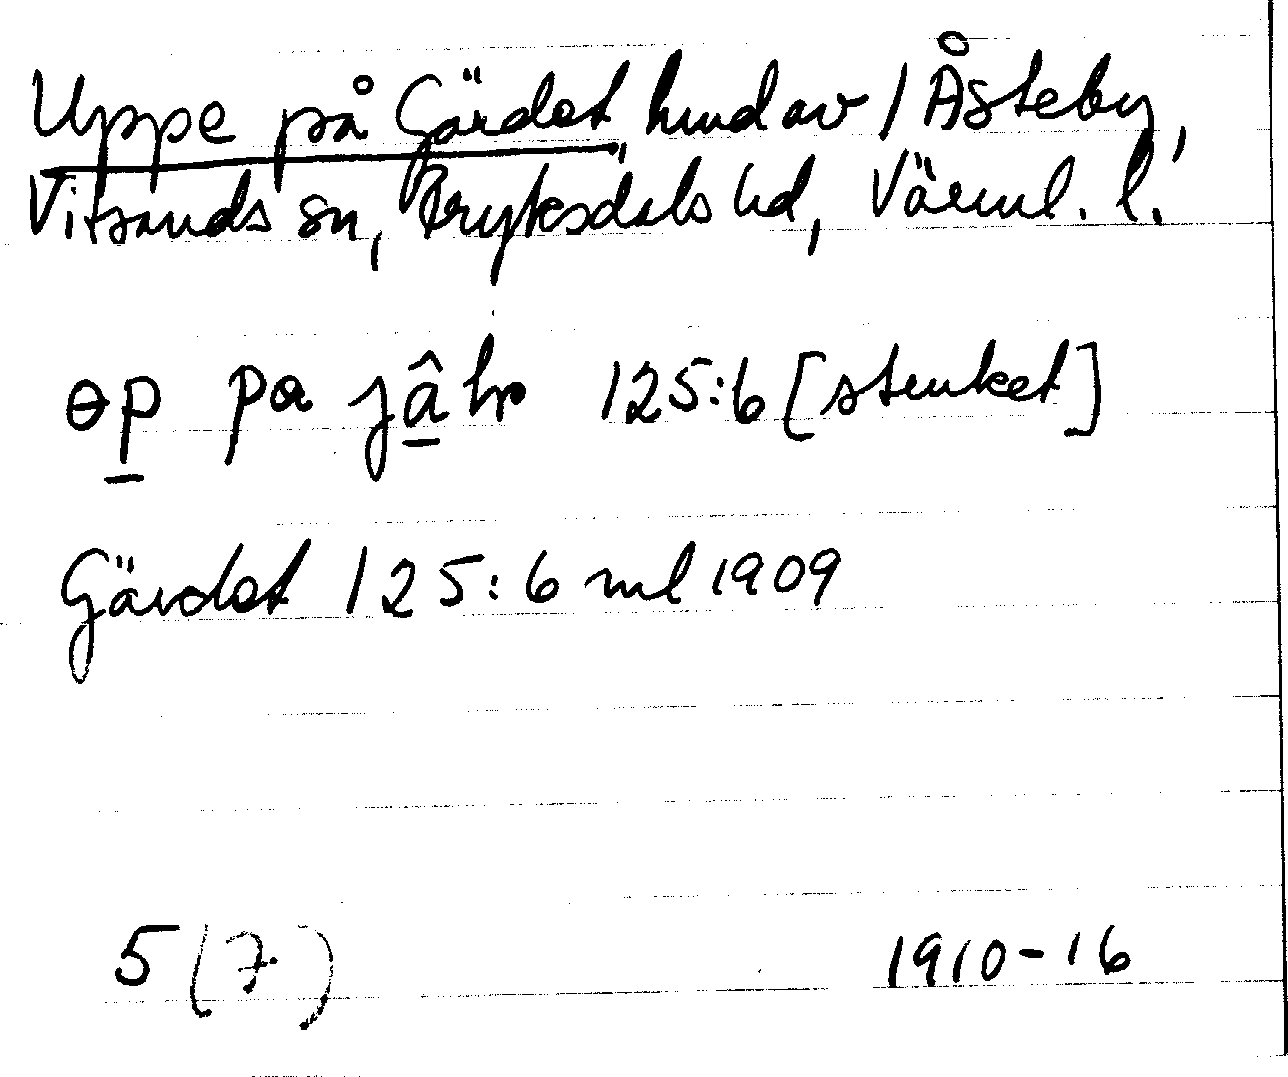 Uppe på Gärdet, hmd av 1 Åsteby,
Vitsands sn, Fryksdals hd, Värml. l.
ɵp pa jâ 125:6 [struket]
Gärdet 125:6 ml 1909
5(7) 1910-16